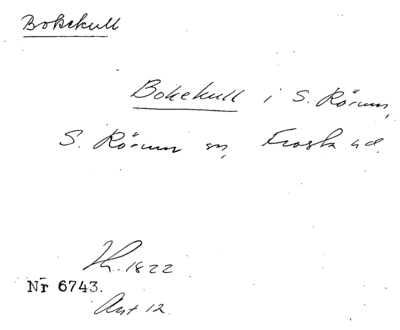 Bokekull
Bokekull i S. Rörum,
S. Rörum sn, Frosta hd.
1822
Nr 6743.
Avt 12.